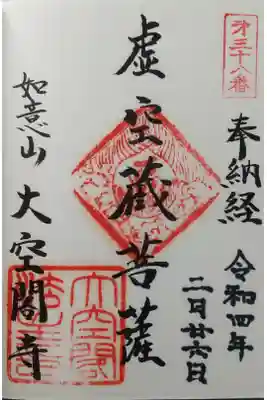 第三十八番
奉納経
令和四年
二月廿六日
虚空蔵菩薩
如意山
大空閣寺